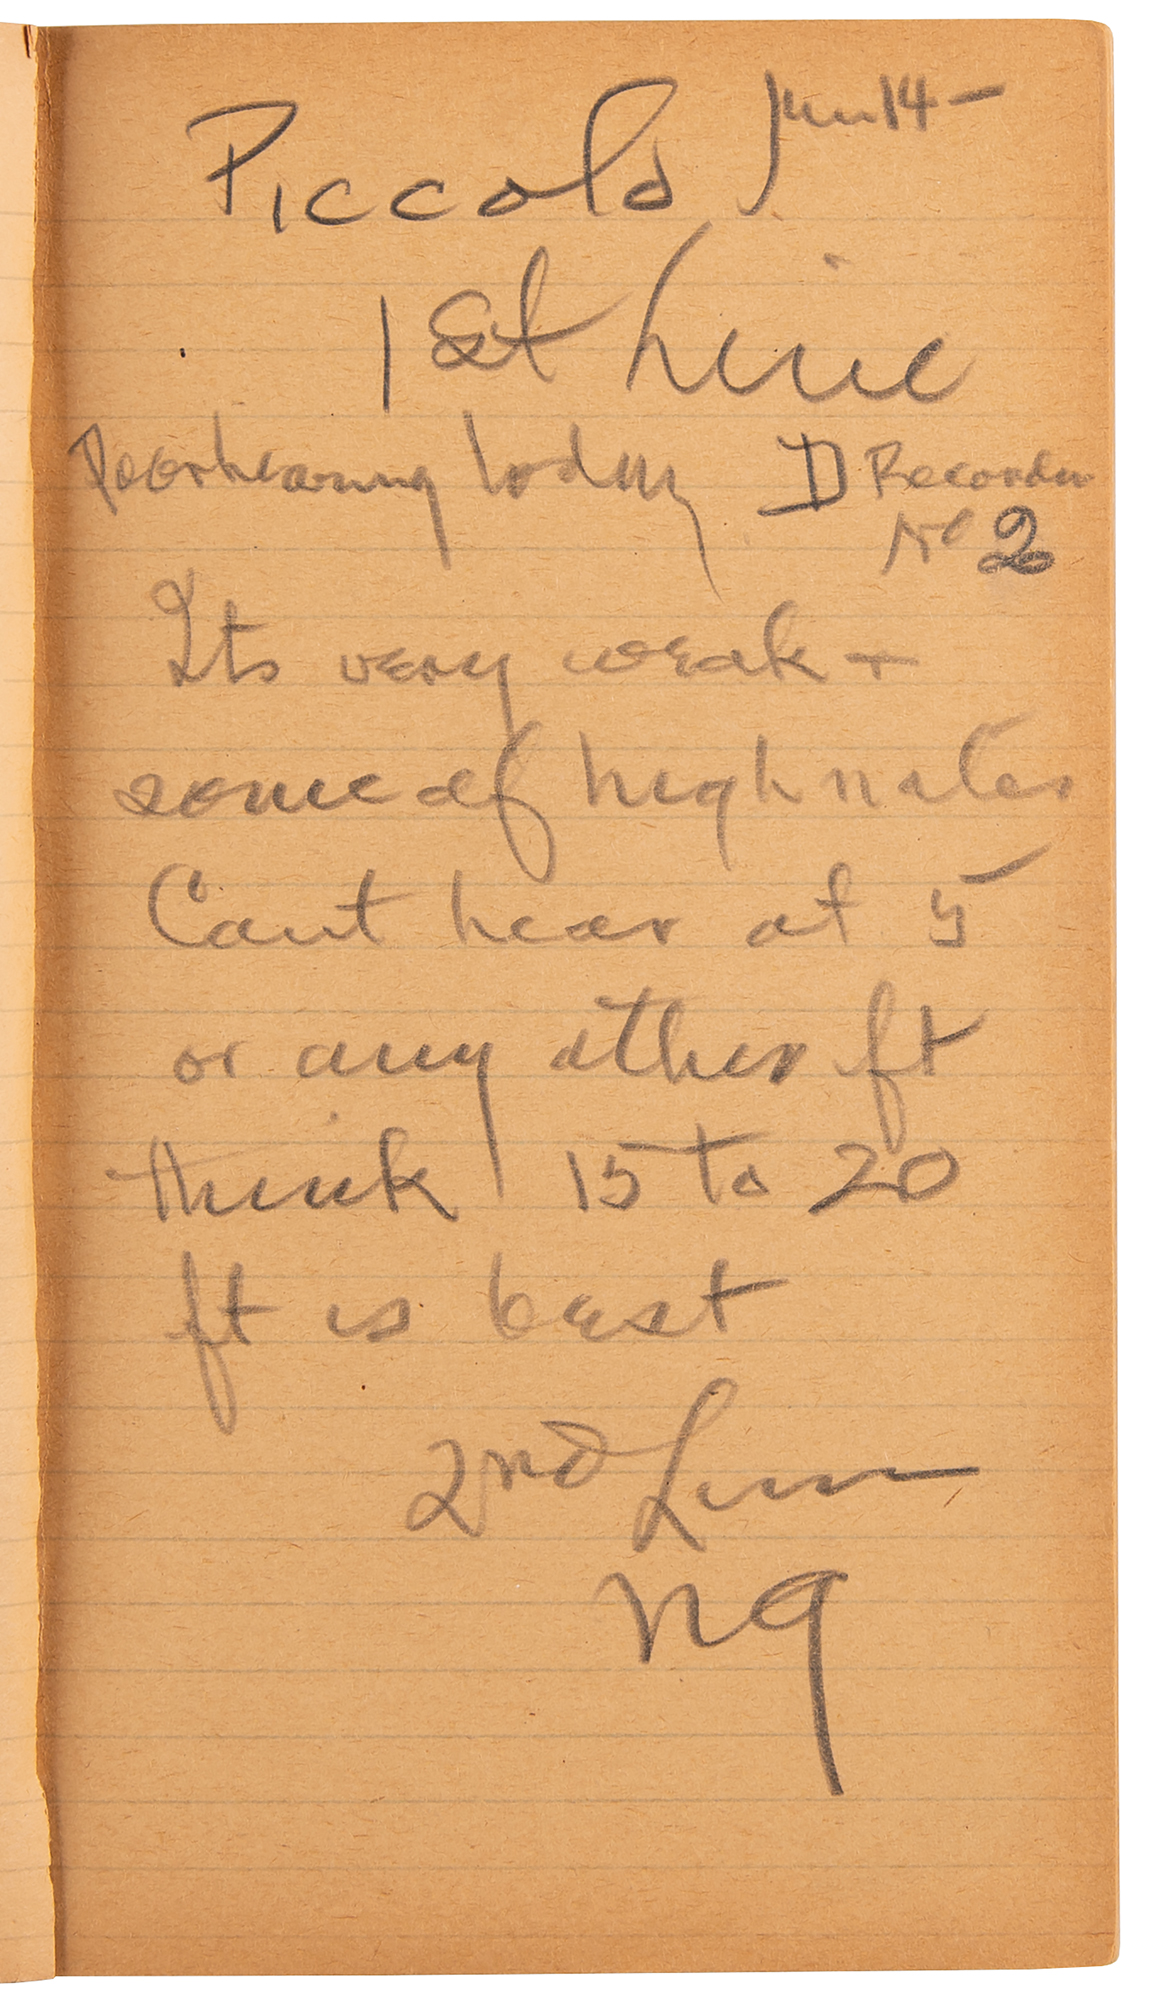 Piccolo Jun 14 —
1st Line
Poor hearing today D Recorder
No 2
Its very weak +
some of high notes
Cant hear at 5
or any other ft
think 15 to 20
ft is best
2nd Line
NG